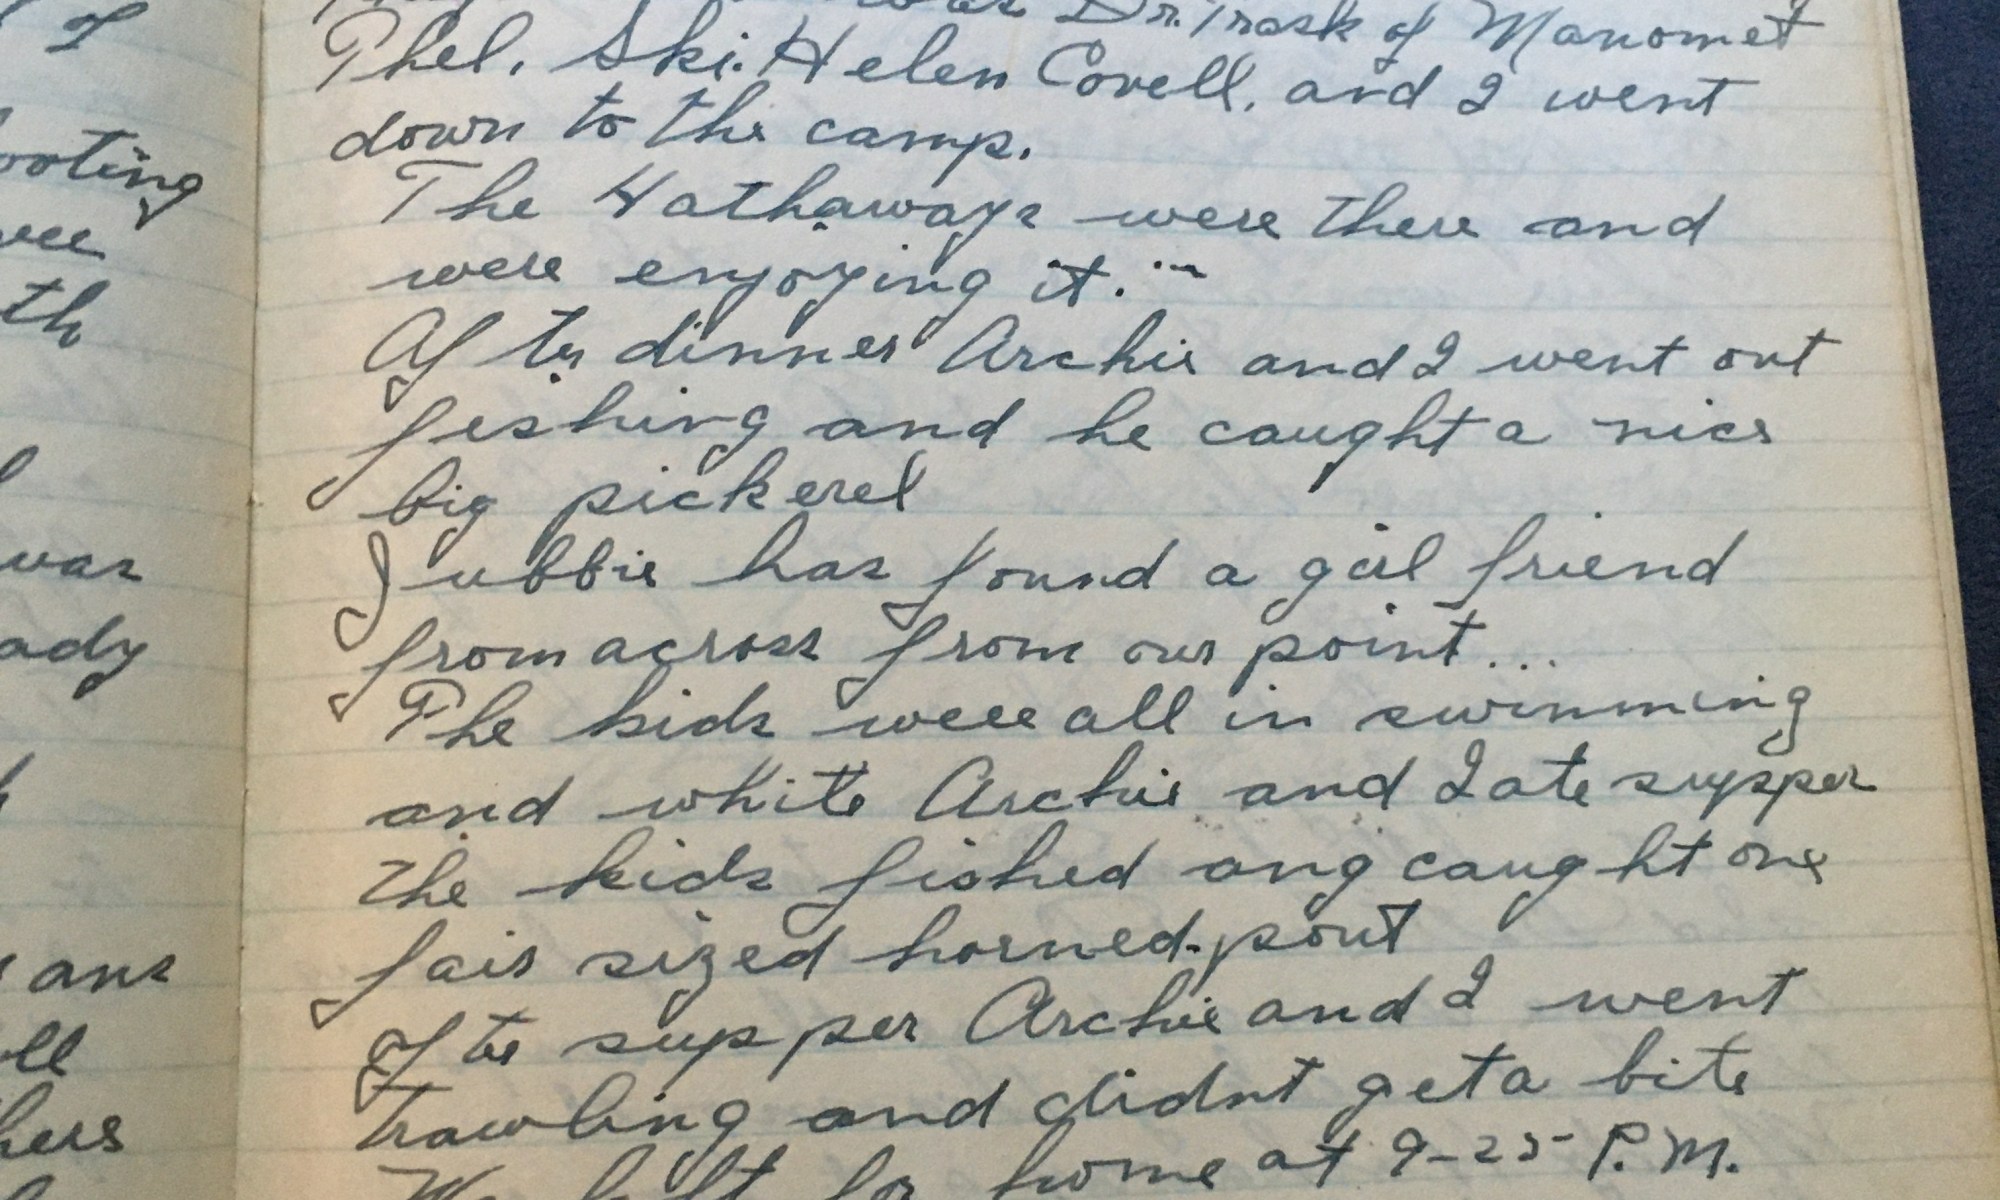 Dr. Trask of Manomet
Phel, Ski. Helen Covell, and I went
down to the camp.
The Hathaways were there and
were enjoying it.
After dinner Archie and I went out
fishing and he caught a nice
big pickerel
Jubbie has found a girl friend
from across from our point...
The kids were all in swimming
and while Archie and I ate supper
the kids fished ang caught one
fair sized horned-pout
After supper Archie and I went
trawling and didnt get a bite
We left for home at 9-25 P.M.
ooting
th
was
ady
ans